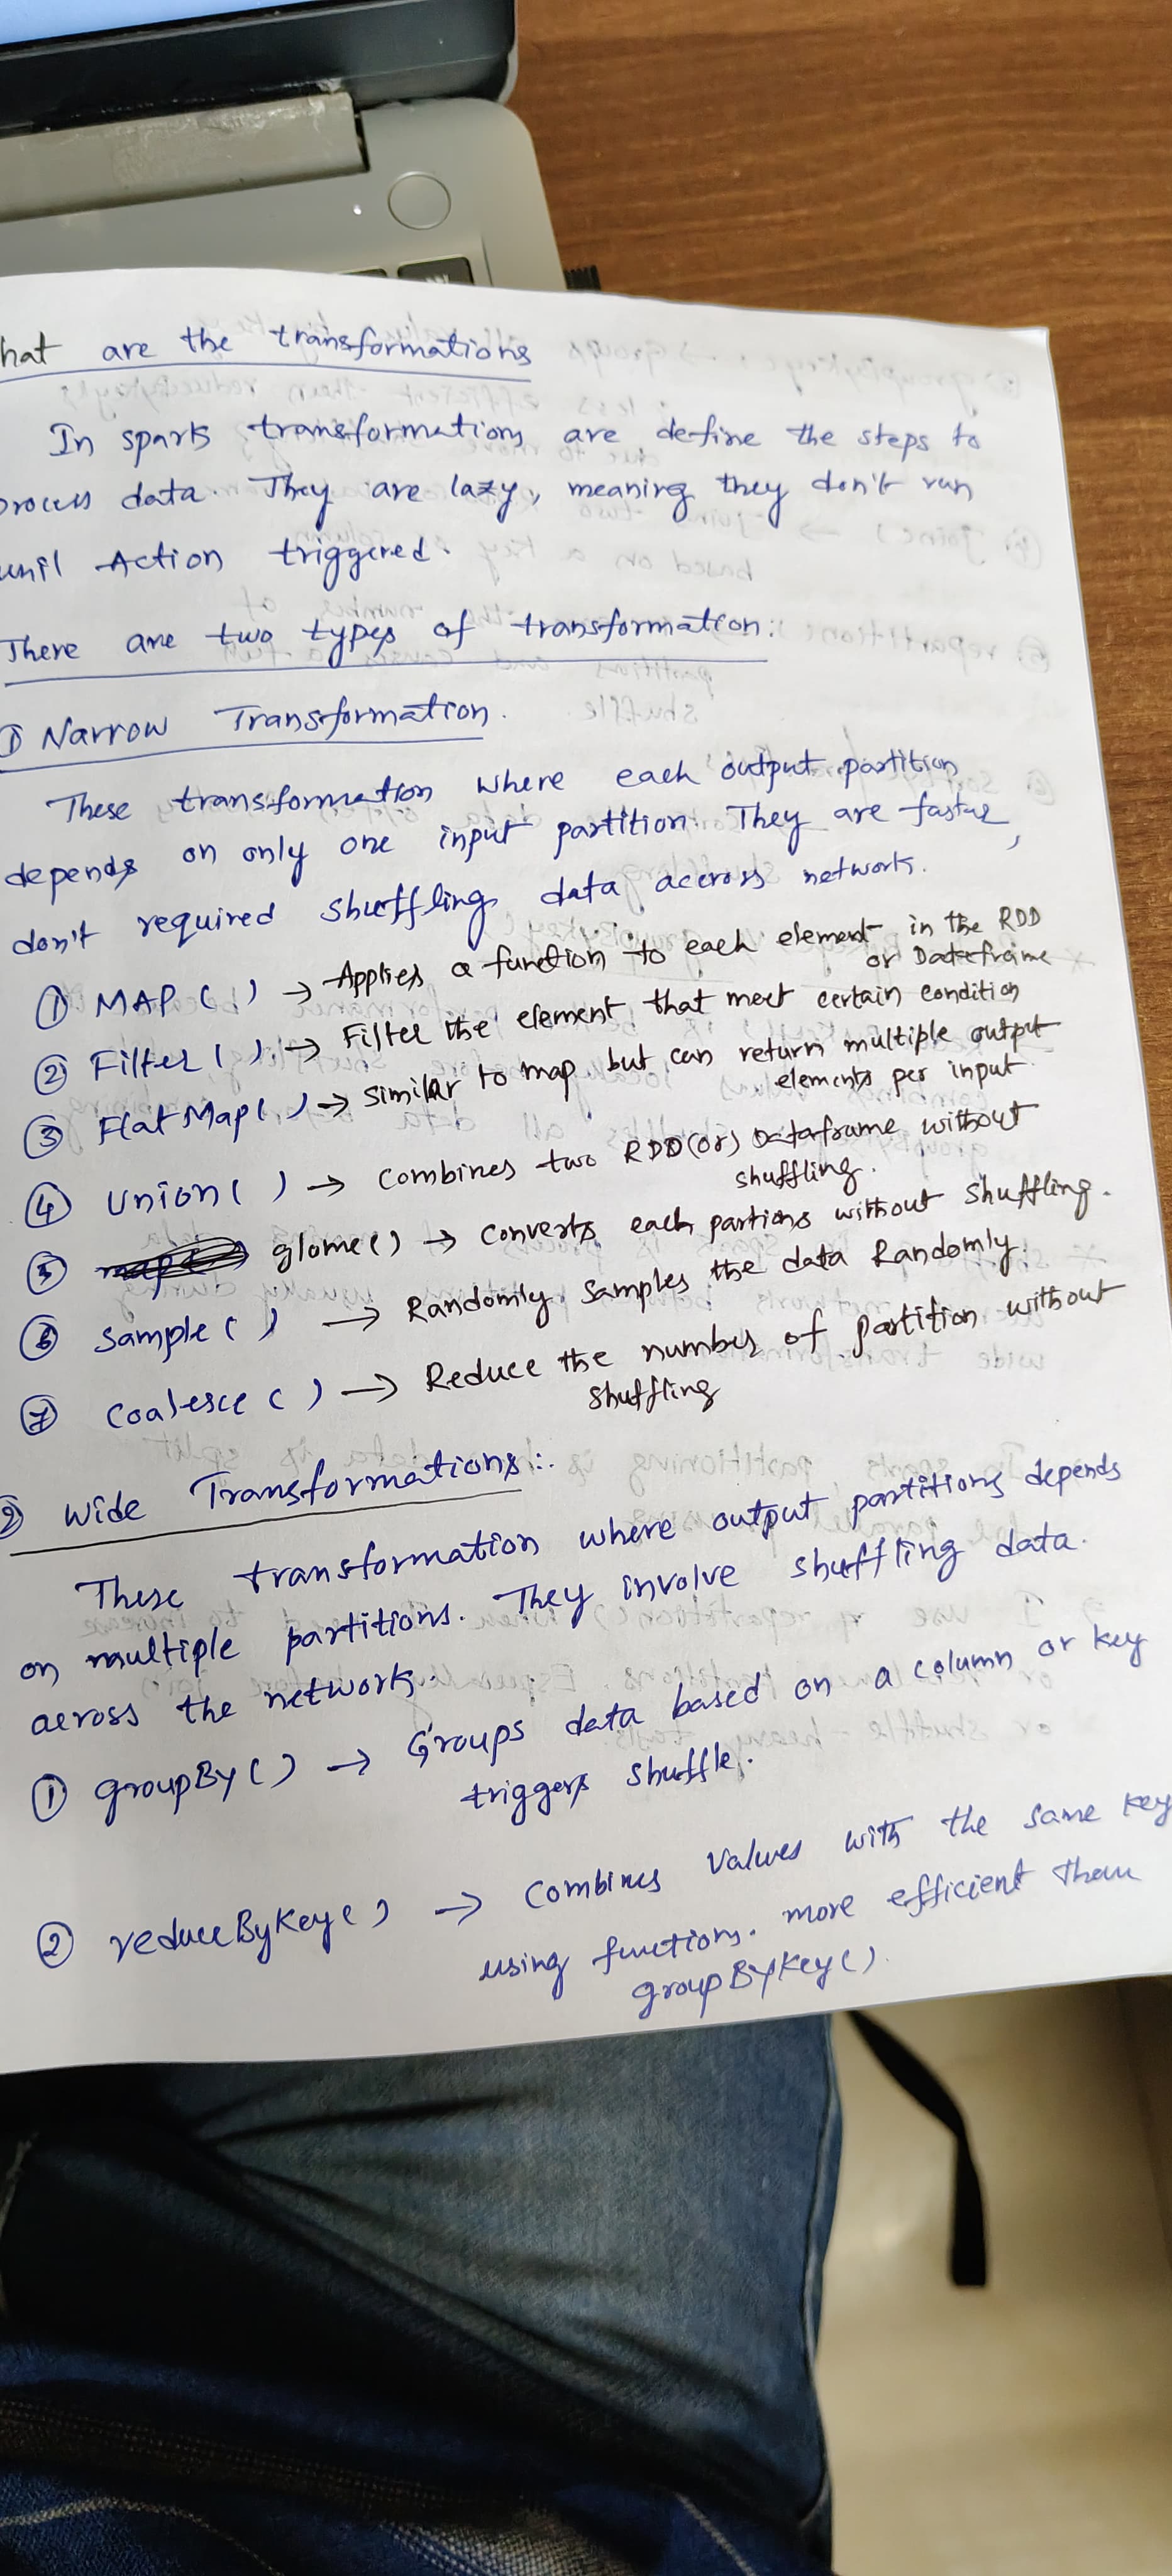 hat are the transformations
In spark transformations are define the steps to
process data. They are lazy, meaning they don't run
until Action triggered.
There are two types of transformation:
① Narrow Transformation.
These transformation where each output partition
depends on only one input partition. They are faster,
don't required shuffling data accross network.
① MAP ( ) → Applies a function to each element in the RDD
or Dataframe
② Filter ( ) → Filter the element that meet certain condition
③ Flat Map ( ) → similar to map but can return multiple output
elements per input
④ Union ( ) → Combines two RDD (or) Dataframe without
shuffling.
⑤ glome() → converts each partions without shuffling.
⑥ Sample ( ) → Randomly samples the data Randomly.
⑦ Coalesce ( ) → Reduce the number of partition without
shuffling
② Wide Transformations:
These transformation where output partitions depends
on multiple partitions. They involve shuffling data.
across the network.
① groupBy ( ) → Groups data based on a column or key
triggers shuffle.
② reduceByKey() → Combines Values with the same key
using function. more efficient than
groupByKey().